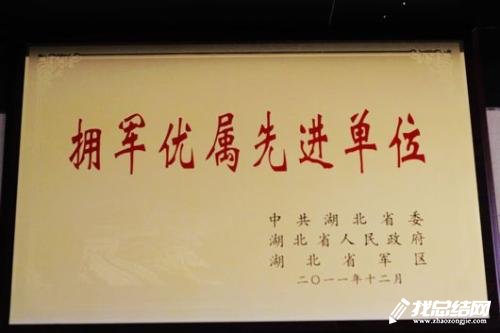 拥军优属先进单位
中共湖北省委
湖北省人民政府
湖北省军区
二〇一一年十二月
找总结网
www.zhaozongjie.com